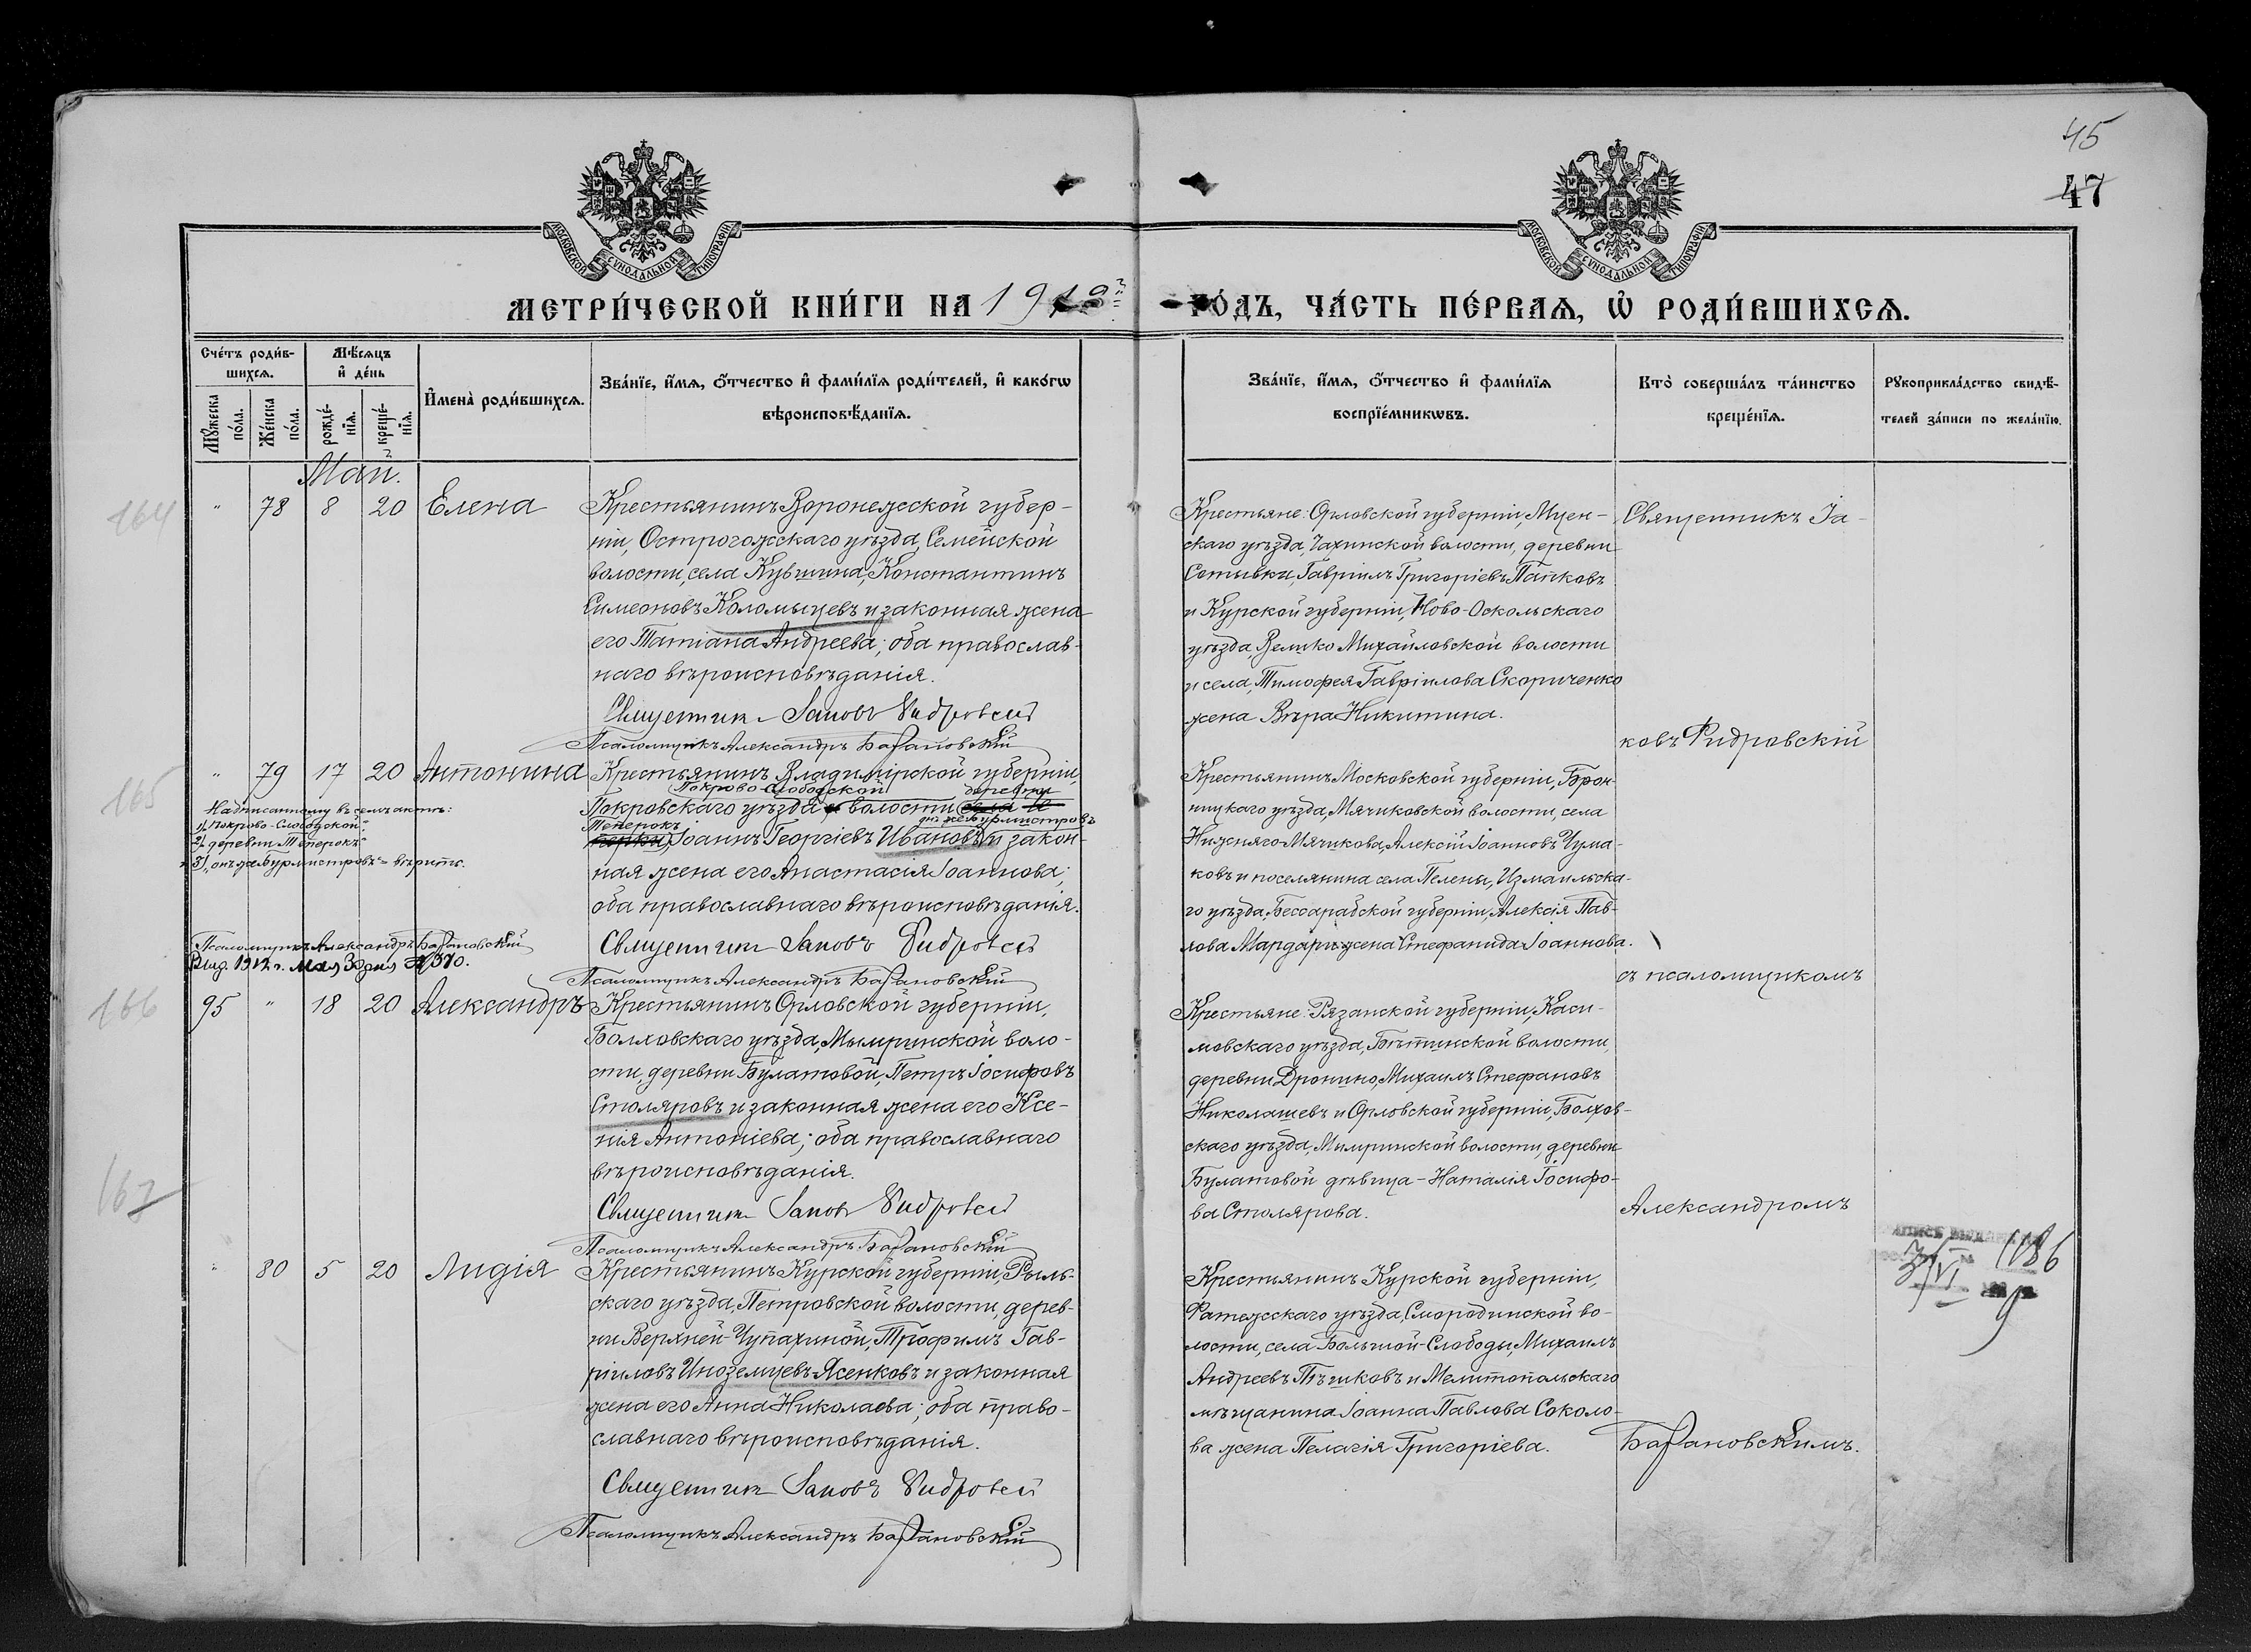 45
47
МОСКОВСКОЙ СѴНОДАЛЬНОЙ ТИПОГРАФІИ
МОСКОВСКОЙ СѴНОДАЛЬНОЙ ТИПОГРАФІИ
МЕТРИ́ЧЕСКОЙ КНИ́ГИ НА 191
ГО́ДЪ, ЧА́СТЬ ПЕ́РВАѦ, Ѡ҆ РОДИ́ВШИХСѦ.
Сче́тъ роди́в-
шихсѧ.
Мѣ́сѧцъ
и҆ де́нь
Мꙋ́жеска
по́ла.
Же́нска
по́ла.
рожде́-
нїѧ.
креще́-
нїѧ.
И҆мена̀ роди́вшихсѧ.
Зва́нїе, и҆́мѧ, ѻ҆́тчество и҆ фами́лїѧ роди́телей, и҆ како́гѡ
вѣроисповѣ́данїѧ.
Зва́нїе, и҆́мѧ, ѻ҆́тчество и҆ фами́лїѧ
воспрїе́мникѡвъ.
Кто̀ соверша́лъ та́инство
креще́нїѧ.
Рꙋкоприкла́дство свидѣ́-
телей за́писи по жела́нїю.
Май.
164
" 78 8 20 Елена
Крестьянинъ Воронежской губер-
ніи, Острогожсскаго уѣзда, Семейской
волости, села Кувшина, Константинъ
Симеоновъ Коломыцевъ и законная жена
его Татіана Андреева; оба православ-
наго вѣроисповѣданія.
Священникъ Іаковъ Фидровскій
Псаломщикъ Александръ Барановскій
Крестьяне: Орловской губерніи, Мцен-
скаго уѣзда, Чахинской волости, деревни
Сотывки, Гавріилъ Григоріевъ Папковъ
и Курской губерніи, Ново-Оскольскаго
уѣзда, Велико Михайловской волости
и села, Тимофея Гавріилова Скориченко
жена Вѣра Никитина.
Священникъ Іа-
ковъ Фидровскій
165
" 79 17 20 Антонина
Крестьянинъ Владимірской губерніи,
Покрово-Слободской деревни
Покровскаго уѣзда, волости
Теперокъ онъ же Бурмистровъ
Іоаннъ Георгіевъ Ивановъ и закон-
ная жена его Анастасія Іоаннова;
оба православнаго вѣроисповѣданія.
Священникъ Іаковъ Фидровскій
Псаломщикъ Александръ Барановскій
Надписанному въ семъ актѣ:
1) „Покрово-Слободской"
2) „деревни Теперокъ"
3) „онъ же Бурмистровъ" вѣрить.
Псаломщикъ Александръ Барановскій
Выд. 1912 г. мая 30 дня № 370.
Крестьянинъ Московской губерніи, Брон-
ницкаго уѣзда, Мячиковской волости, села
Нижняго Мячикова, Алексій Іоанновъ Чума-
ковъ и поселянина села Пелены, Измаильска-
го уѣзда, Бессарабской губерніи, Алексія Пав-
лова Маргаръ жена Стефанида Іоаннова.
съ псаломщикомъ
166
95 " 18 20 Александръ
Крестьянинъ Орловской губерніи,
Болховскаго уѣзда, Мымринской воло-
сти, деревни Булатовой, Петръ Іосифовъ
Столяровъ и законная жена его Ксе-
нія Антоніева; оба православнаго
вѣроисповѣданія.
Священникъ Іаковъ Фидровскій
Псаломщикъ Александръ Барановскій
Крестьяне: Рязанской губерніи, Каси-
мовскаго уѣзда, Бѣтинской волости,
деревни Дронино, Михаилъ Стефановъ
Николашевъ и Орловской губерніи, Болхов-
скаго уѣзда, Мымринской волости, деревни
Булатовой дѣвица - Наталія Іосифо-
ва Столярова.
Александромъ
167
" 80 5 20 Лидія
Крестьянинъ Курской губерніи, Рыль-
скаго уѣзда, Петровской волости, дерев-
ни Верхней-Чупахиной, Трофимъ Гав-
ріиловъ Иноземцевъ-Ясенковъ и законная
жена его Анна Николаева; оба право-
славнаго вѣроисповѣданія.
Священникъ Іаковъ Фидровскій
Псаломщикъ Александръ Барановскій
Крестьянинъ Курской губерніи,
Фатежсскаго уѣзда, Смородинской во-
лости, села Большой-Слободы, Михаилъ
Андреевъ Пѣшковъ и Мелитопольскаго
мѣщанина Іоанна Павлова Соколо-
ва жена Пелагія Григоріева.
Барановскимъ.
1186